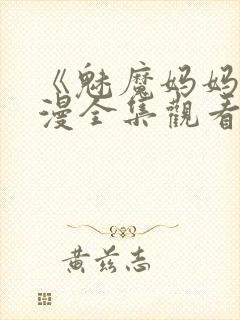 《魅魔妈妈
漫全集觀看
黄兹志